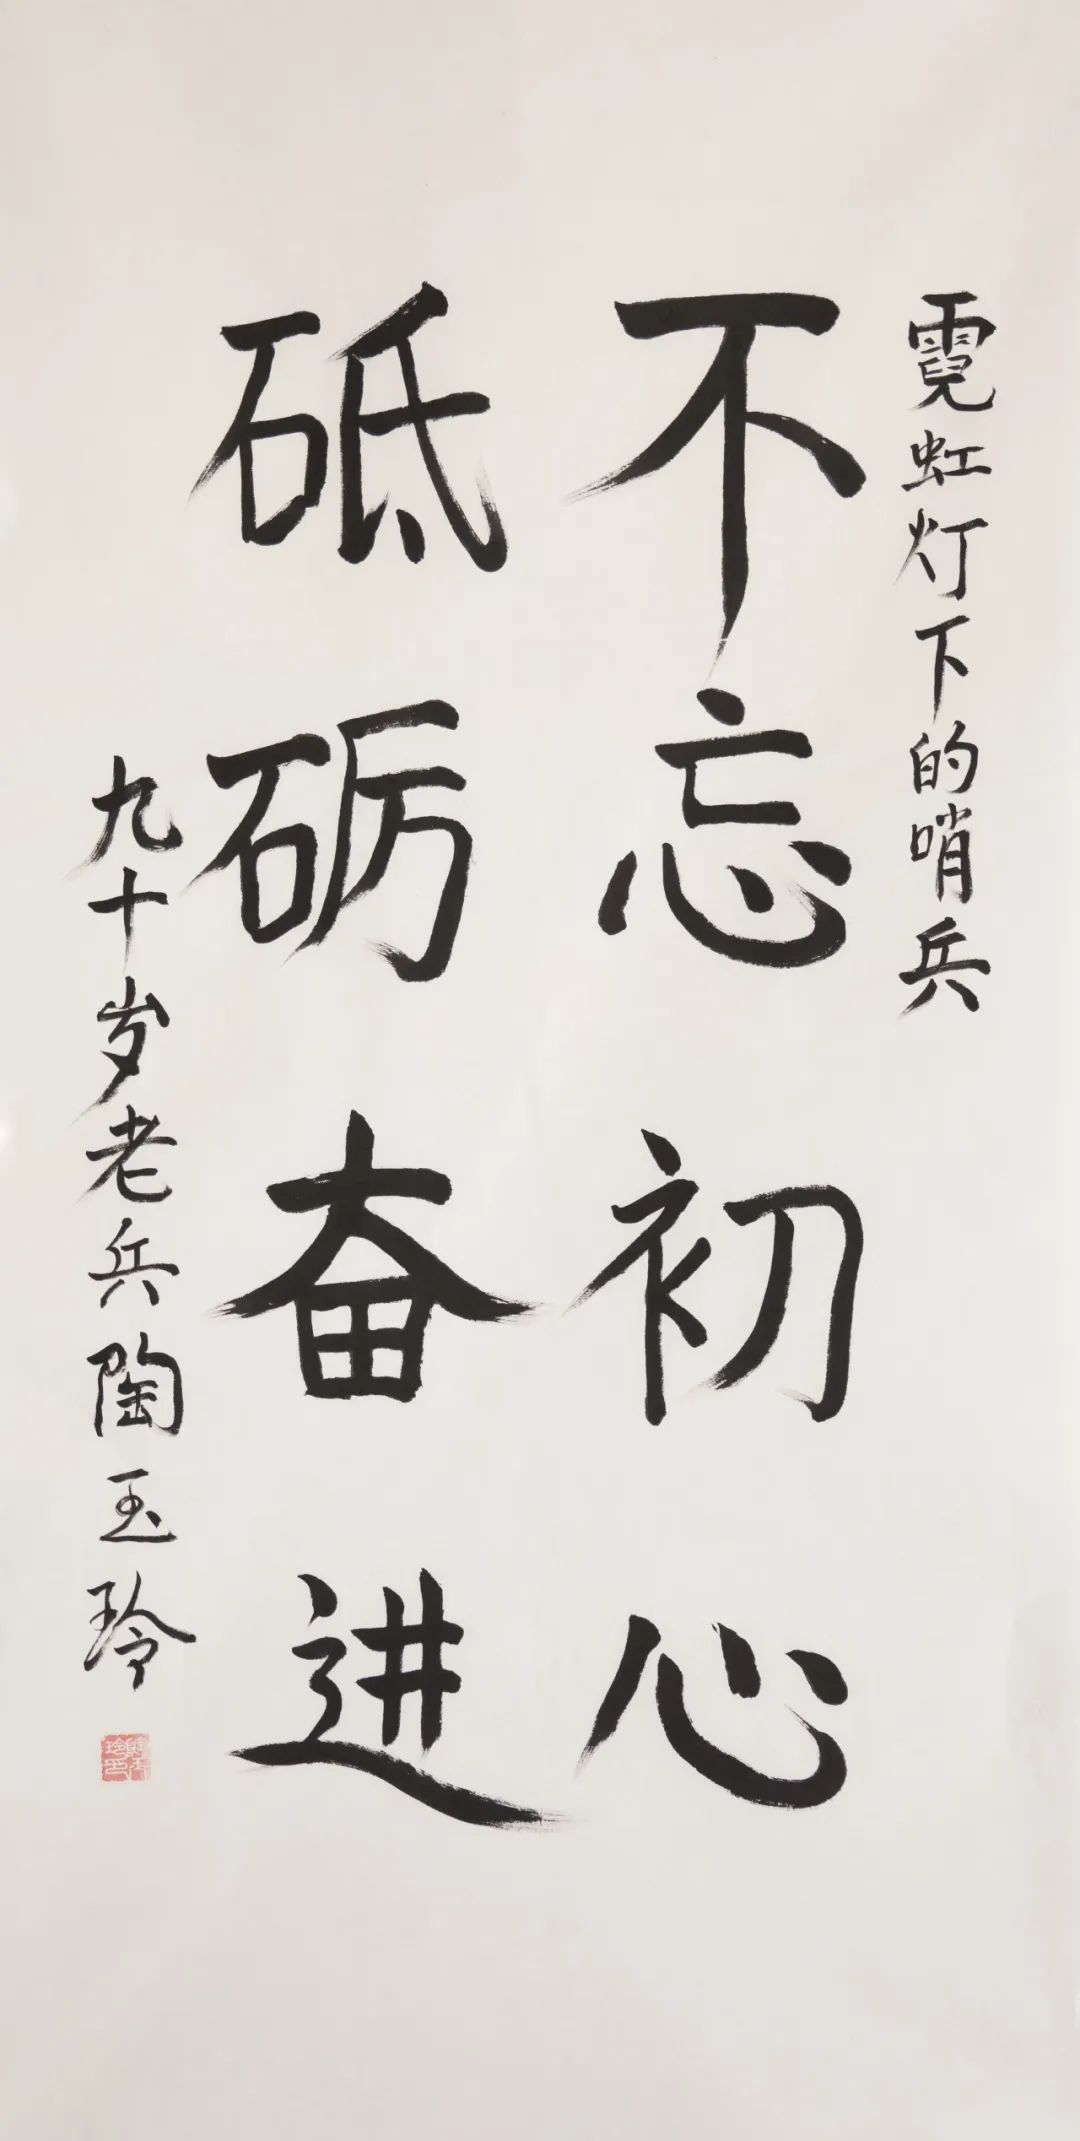 霓虹灯下的哨兵
不忘初心
砥砺奋进
九十岁老兵陶玉玲